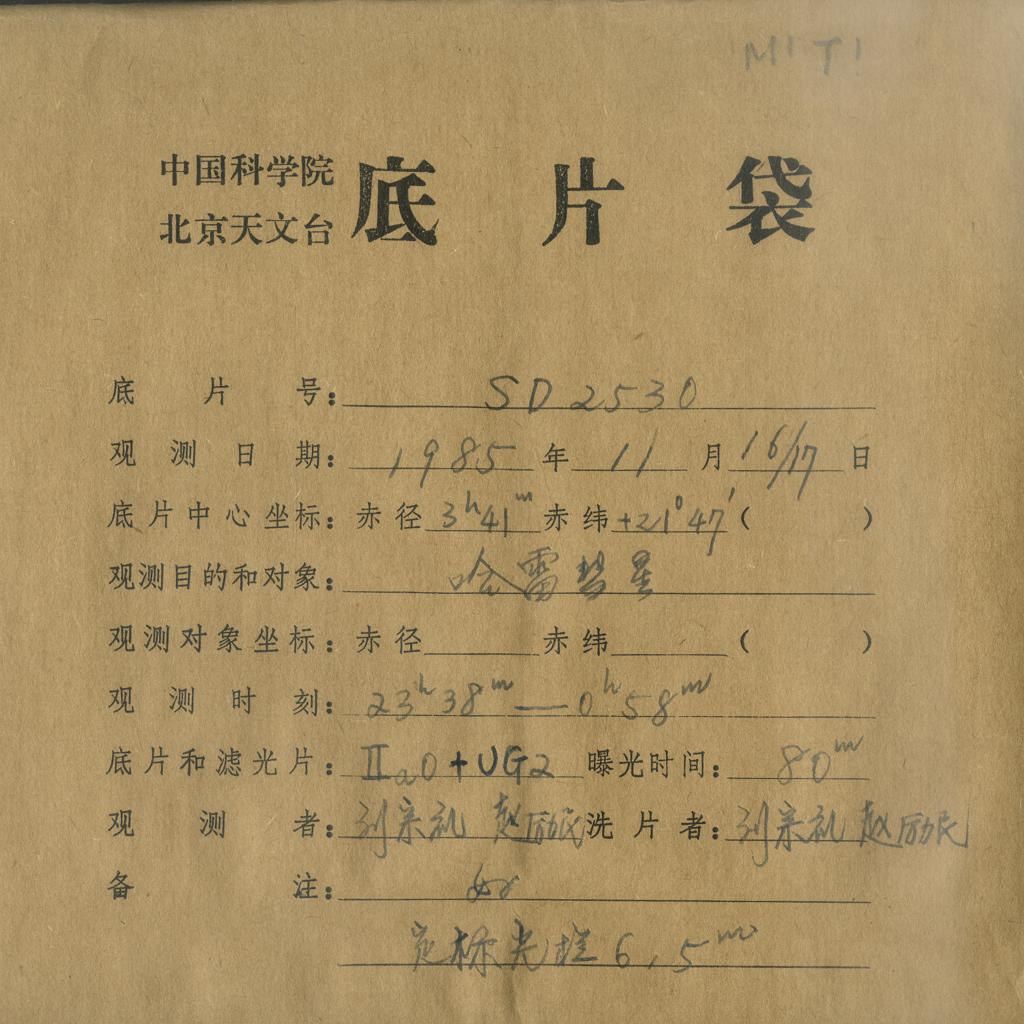 M' T'
中国科学院
北京天文台 底片袋
底片号: SD 2530
观测日期: 1985 年 11 月 16/17 日
底片中心坐标: 赤径 3h 41m 赤纬 +21° 47′ ( )
观测目的和对象: 哈雷彗星
观测对象坐标: 赤径 赤纬 ( )
观测时刻: 23h 38m — 0h 58m
底片和滤光片: IIa0 + UG2 曝光时间: 80m
观测者: 刘宗礼 赵励民 洗片者: 刘宗礼 赵励民
备注: 好
定标光楔 6.5m